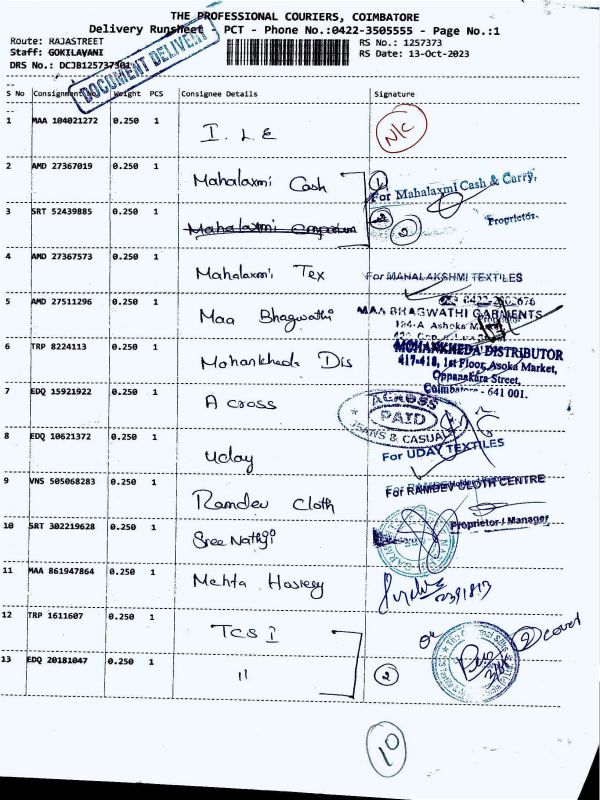 THE PROFESSIONAL COURIERS, COIMBATORE
Delivery Runsheet - PCT - Phone No.:0422-3505555 - Page No.:1
Route: RAJASTREET
RS No.: 1257373
Staff: GOKILAVANI
RS Date: 13-Oct-2023
DRS No.: DCJB125737301
DOCUMENT DELIVERY
S No Consignment No Weight PCS Consignee Details Signature
1 MAA 104021272 0.250 1 I. L E N/C
2 AMD 27367019 0.250 1 Mahalaxmi Cash 1
For Mahalaxmi Cash & Carry,
Proprietor.
3 SRT 52439885 0.250 1 Mahalaxmi emporium 2
4 AMD 27367573 0.250 1 Mahalaxmi Tex For MAHALAKSHMI TEXTILES
5 AMD 27511296 0.250 1 Maa Bhagwathi
MAA BHAGWATHI GARMENTS
6 TRP 8224113 0.250 1 Mohankheda Dis
MOHANKHEDA DISTRIBUTOR
417-418, 1st Floor, Asoka Market,
Oppanakara Street,
Coimbatore - 641 001.
7 EDQ 15921922 0.250 1 Across
ACROSS
PAID
JEANS & CASUALS
8 EDQ 10621372 0.250 1 Uday For UDAY TEXTILES
9 VNS 505068283 0.250 1 Ramdev Cloth For RAMDEV CLOTH CENTRE
Proprietor / Manager
10 SRT 302219628 0.250 1 Sree Nathji
11 MAA 861947864 0.250 1 Mehta Hosiery
12 TRP 1611607 0.250 1 TCS I 2 cover
13 EDQ 20181047 0.250 1 " 2
10